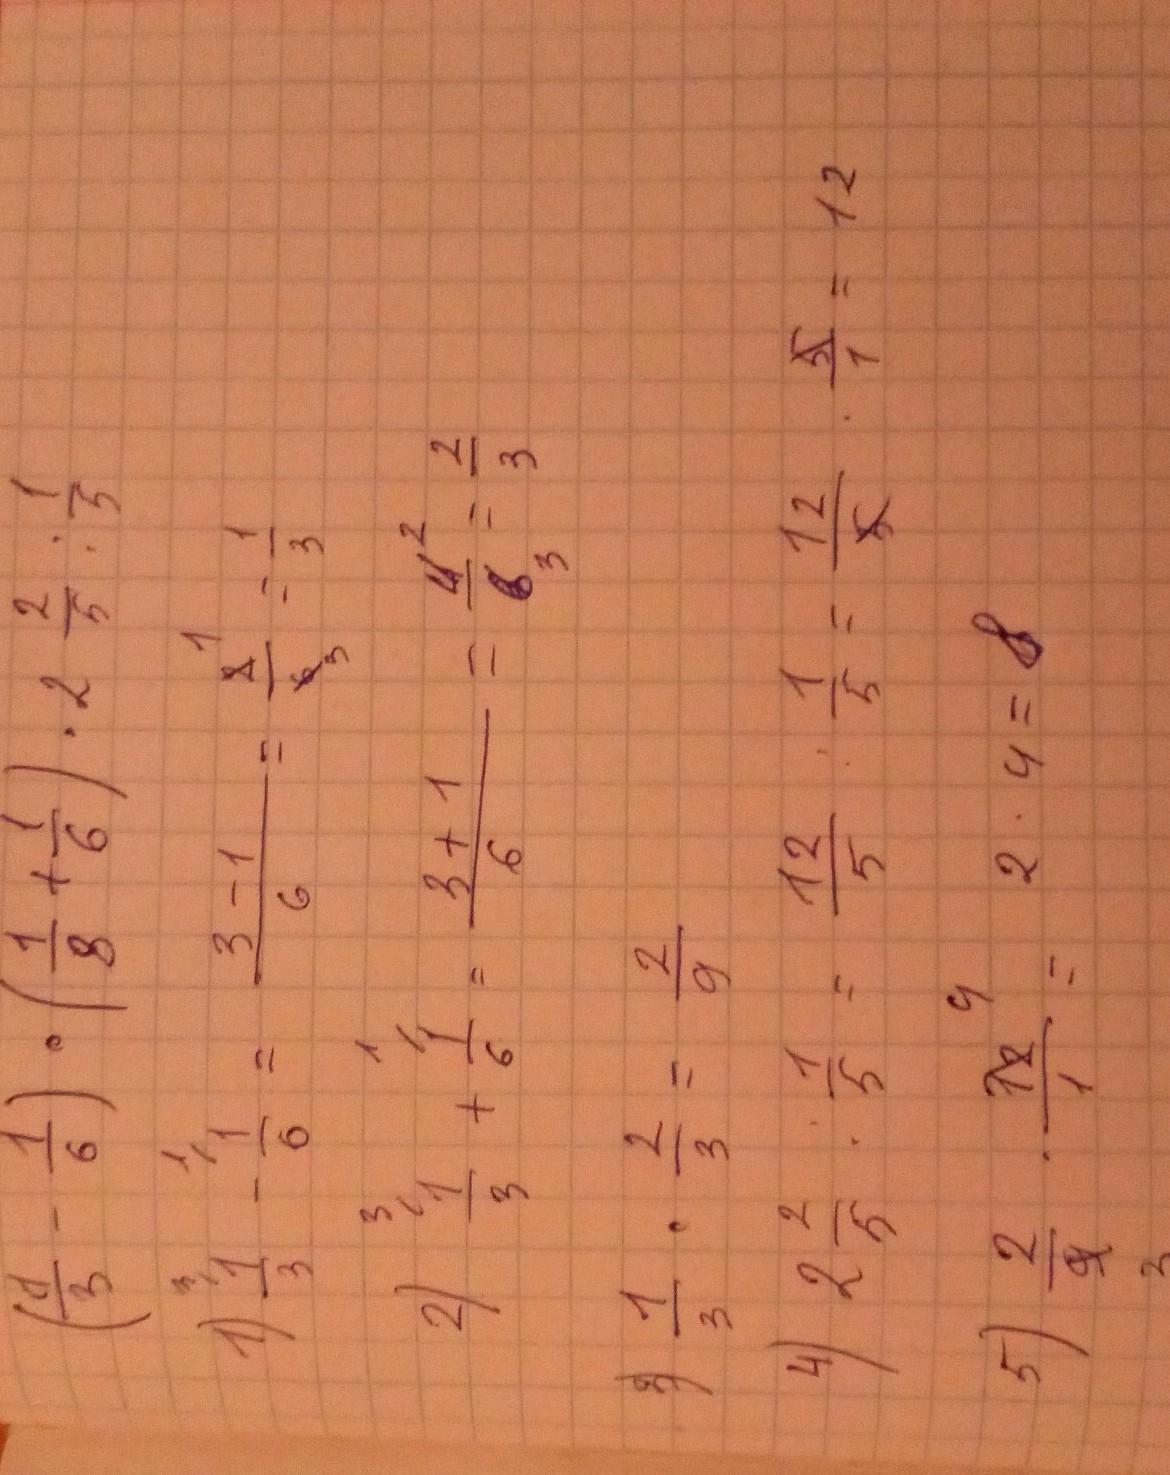 (1/3 - 1/6) · (1/8 + 1/6) · 2 2/5 : 1/5
1) 1/3 - 1/6 = (3-1)/6 = 2/6 = 1/3
2) 1/3 + 1/6 = (3+1)/6 = 4/6 = 2/3
3) 1/3 · 2/3 = 2/9
4) 2 2/5 : 1/5 = 12/5 : 1/5 = 12/5 · 5/1 = 12
5) 2/9 · 12/1 = 2 · 4 = 8